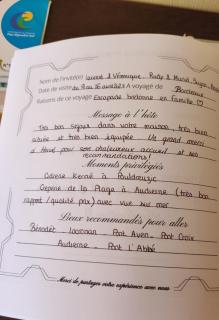 Nom de l'invité(e) Laurent & Véronique - Rudy & Muriel
Date de visite du 9 au 16 août A voyage de Bordeaux
Raisons de ce voyage Escapade bretonne en famille ♡
Message à l'hôte
Très bon séjour dans votre maison, très bien
située et très bien équipée. Un grand merci
à Hervé pour son chaleureux accueil et ses
recommandations!
Moments privilégiés
Adresse Kerné à Pouldreuzic
Crêperie de la Plage à Audierne (très bon
rapport/qualité prix) avec vue sur mer
Lieux recommandés pour aller
Bénodet - Locronan Pont Aven - Pont Croix
Audierne - Pont l'Abbé
Merci de partager votre expérience avec nous